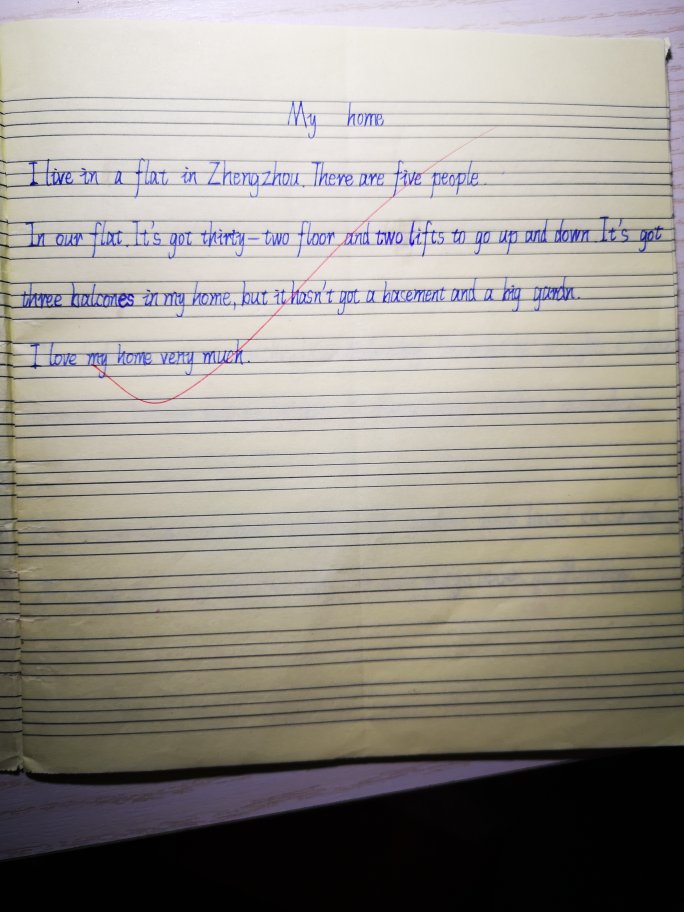 My home
I live in a flat in Zhengzhou. There are five people.
In our flat. It's got thirty-two floor and two lifts to go up and down. It's got
three balcones in my home, but it hasn't got a basement and a big gardn.
I love my home very much.